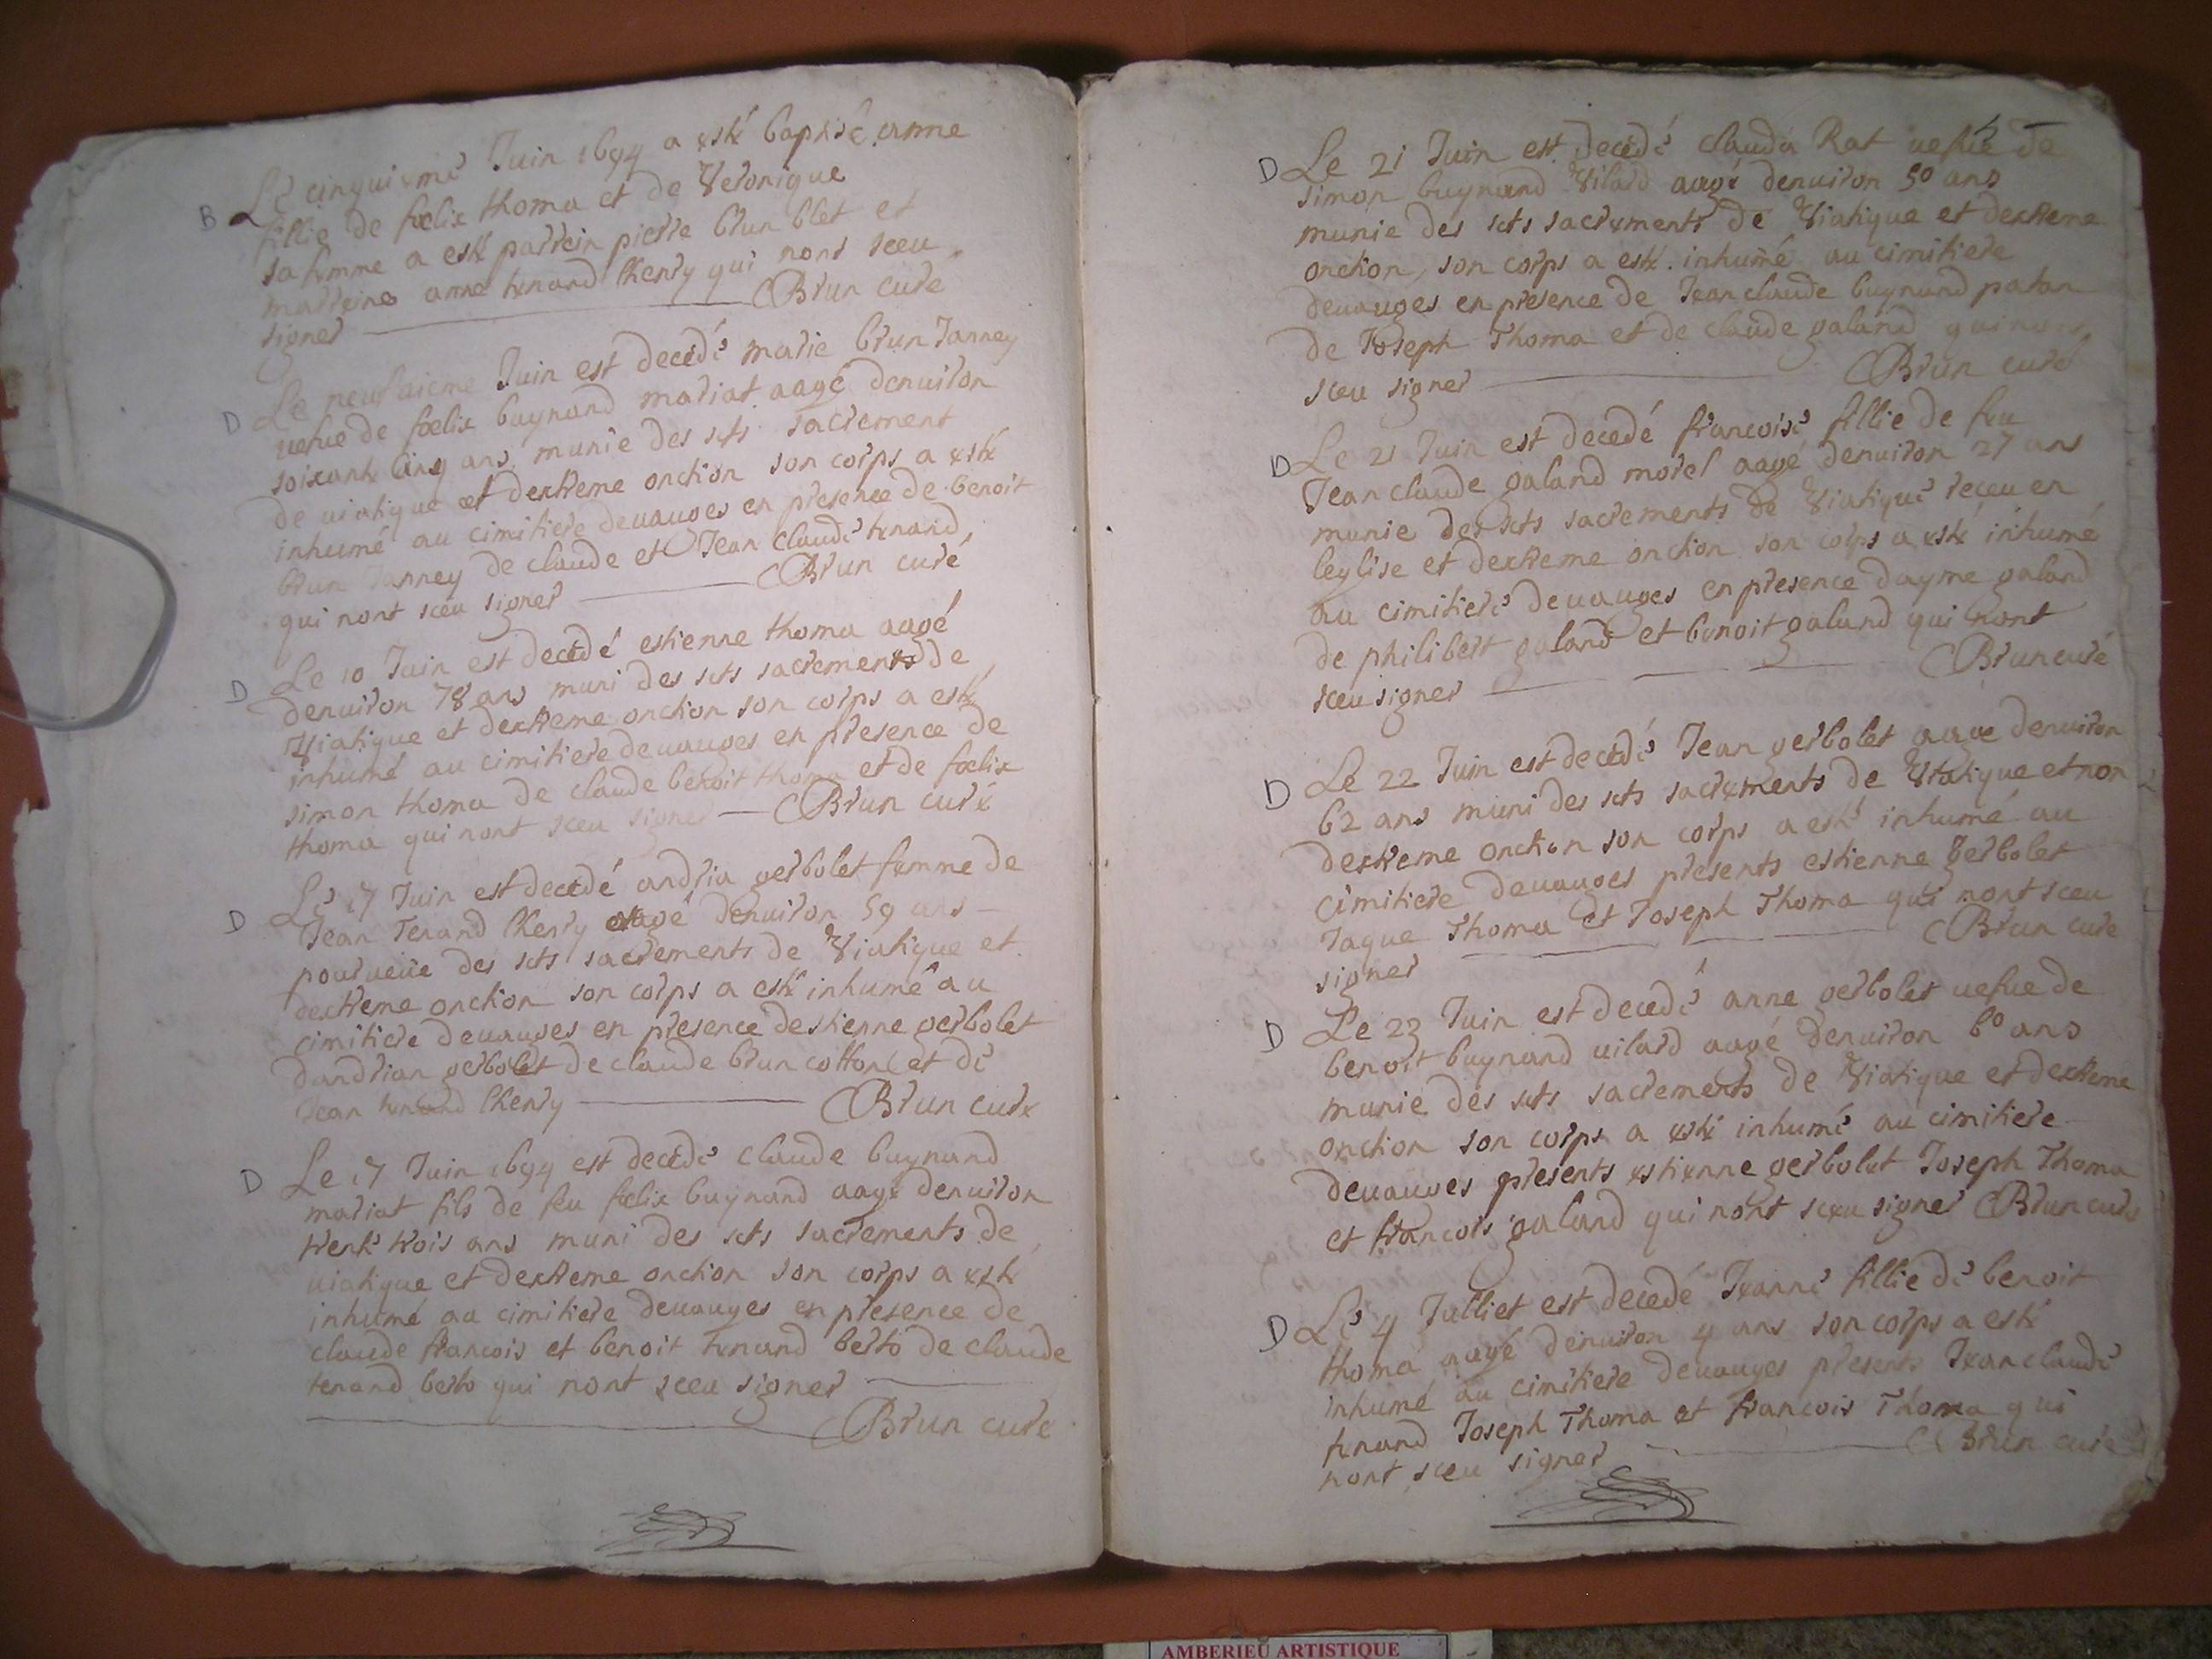 B Le cinquieme Juin 1694 a esté baptisé anne
fillie de foelix thoma et de Veronique
sa femme a esté parrein pierre brun blet et
marreine anne tenand lhenry qui nont sceu
signer Brun curé
D Le neufuieme Juin est decedé marie brun Janney
uefue de foelix buynand mariat aagé denuiron
soixante cinq ans munie des sts sacrement
de uiatique et dextreme onction son corps a esté
inhumé au cimitiere deuauges en presence de benoit
brun Janney de claude et Jean claude tenand
qui nont sceu signer Brun curé
D Le 10 Juin est decedé estienne thoma aagé
denuiron 78 ans muni des sts sacrements de
Viatique et dextreme onction son corps a esté
inhumé au cimitiere deuauges en presence de
simon thoma de claude benoit thoma et de foelix
thoma qui nont sceu signer Brun curé
D Le 17 Juin est decedé andria gerbolet femme de
Jean Tenand lhenry aagé denuiron 59 ans
pourueüe des sts sacrements de Viatique et
dextreme onction son corps a esté inhumé au
cimitiere deuauges en presence destienne gerbolet
dandrian gerbolet de claude brun cotton et de
Jean tenand lhenry Brun curé
D Le 17 Juin 1694 est decedé claude buynand
mariat fils de feu foelix buynand aagé denuiron
trente trois ans muni des sts sacrements de
uiatique et dextreme onction son corps a esté
inhumé au cimitiere deuauges en presence de
claude francois et benoit tenand berto de claude
tenand berto qui nont sceu signer
Brun curé
D Le 21 Juin est decedé clauda Rat uefue de
simon buynand Vilard aagé denuiron 50 ans
munie des sts sacrements de Viatique et dextreme
onction, son corps a esté inhumé au cimitiere
deuauges en presence de Jean claude buynand patan
de Joseph Thoma et de claude galand qui nont
sceu signer Brun curé
D Le 21 Juin est decedé francoise fillie de feu
Jean claude galand morel aagé denuiron 27 ans
munie des sts sacrements de Viatique receu en
leglise et dextreme onction son corps a esté inhumé
au cimitiere deuauges en presence dayme galand
de philibert galand et benoit galand qui nont
sceu signer Brun curé
D Le 22 Juin est decedé Jean gerbolet aagé denuiron
62 ans muni des sts sacrements de Viatique et non
dextreme onction son corps a esté inhumé au
cimitiere deuauges presents estienne gerbolet
Jaque Thoma et Joseph Thoma qui nont sceu
signer Brun curé
D Le 23 Juin est decedé anne gerbolet uefue de
benoit buynand uilard aagé denuiron 60 ans
munie des sts sacrements de Viatique et dextreme
onction son corps a esté inhumé au cimitiere
deuauges presents estienne gerbolet Joseph Thoma
et francois galand qui nont sceu signer Brun curé
D Le 4 Julliet est decedé Jeanne fillie de benoit
thoma aagé denuiron 4 ans son corps a esté
inhumé au cimitiere deuauges presents Jean claude
tenand Joseph Thoma et francois Thoma qui
nont sceu signer Brun curé
AMBERIEU ARTISTIQUE